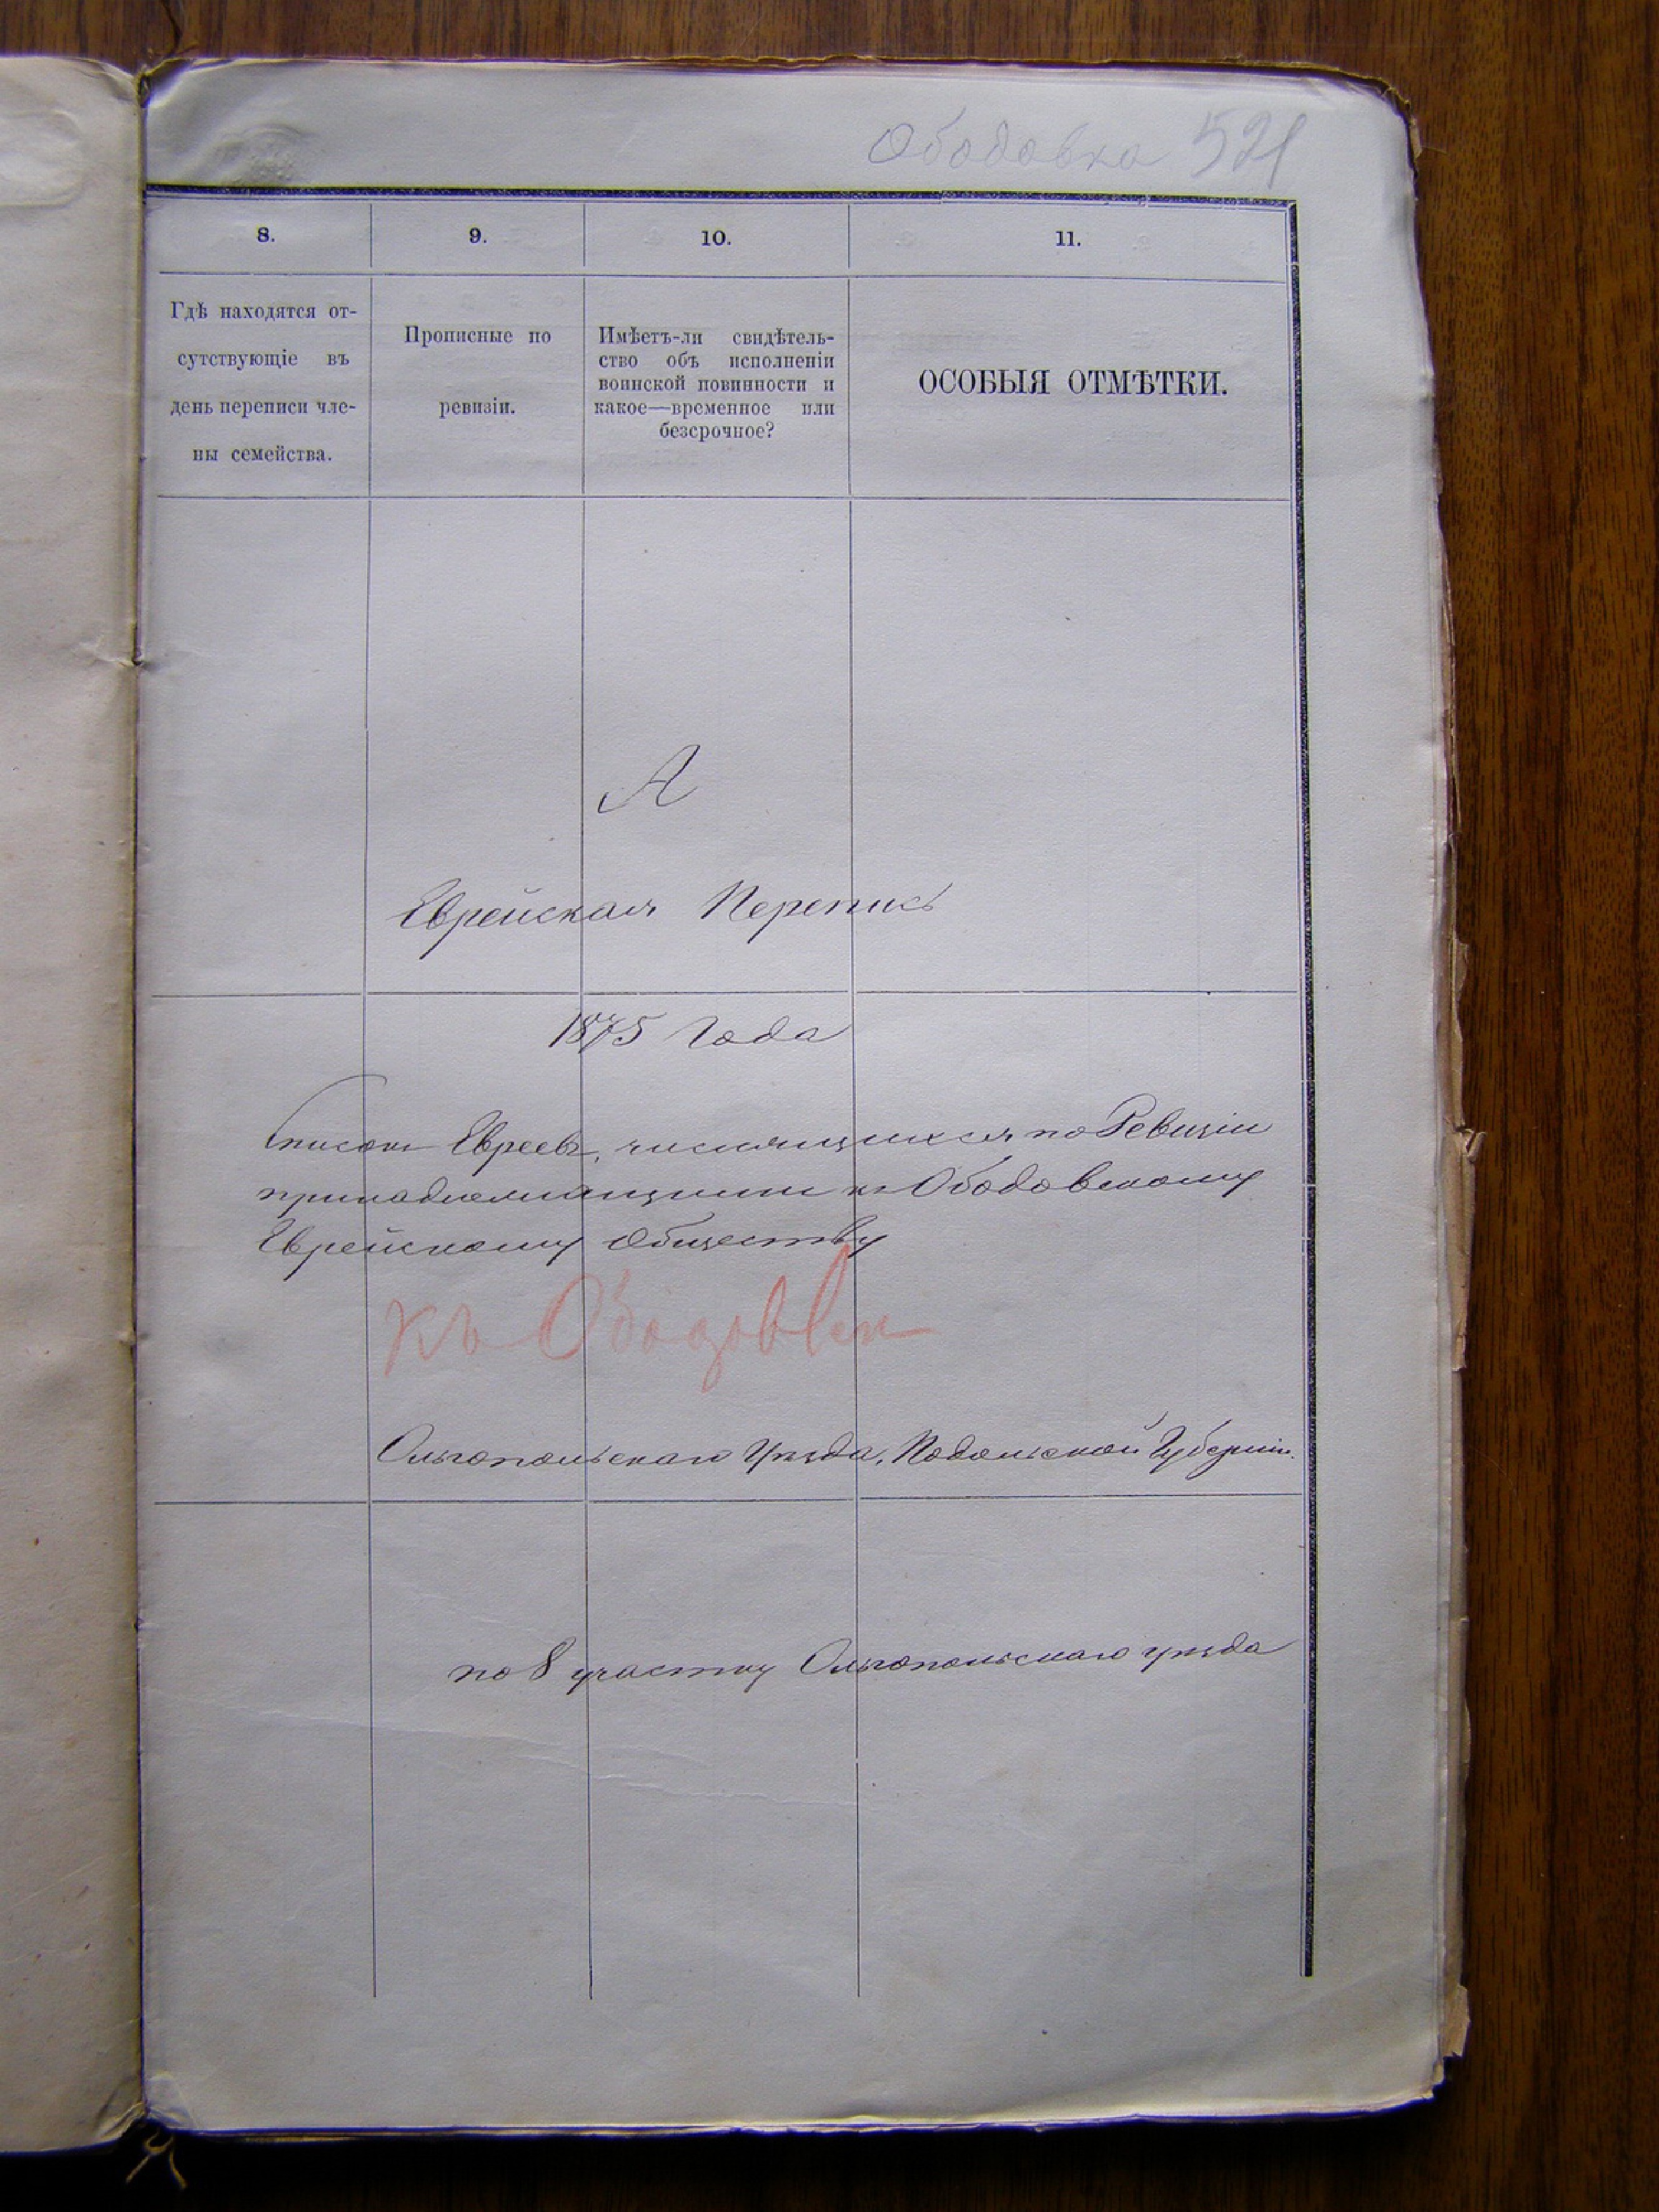 Ободовка 521
8. 9. 10. 11.
Гдѣ находятся от-
сутствующіе въ
день переписи чле-
ны семейства.
Прописные по
ревизіи.
Имѣетъ-ли свидѣтель-
ство объ исполненіи
воинской повинности и
какое—временное или
безсрочное?
ОСОБЫЯ ОТМѢТКИ.
А
Еврейская Перепись
1875 Года
Списокъ Евреевъ, числящихся по Ревизіи
принадлежащими къ Ободовскому
Еврейскому Обществу
Къ
Ольгопольскаго Уѣзда, Подольской Губерніи.
по 8 участку Ольгопольскаго уѣзда